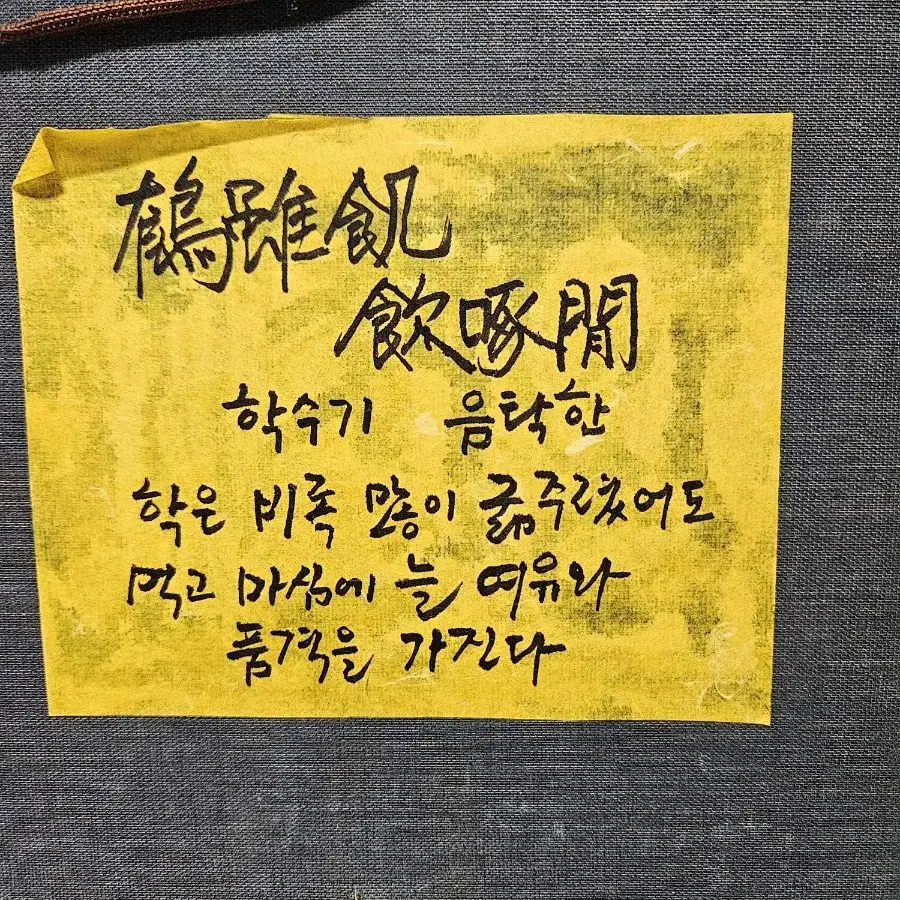 鶴雖飢
飮啄閒
학수기 음탁한
학은 비록 많이 굶주렸어도
먹고 마심에 늘 여유와
품격을 가진다